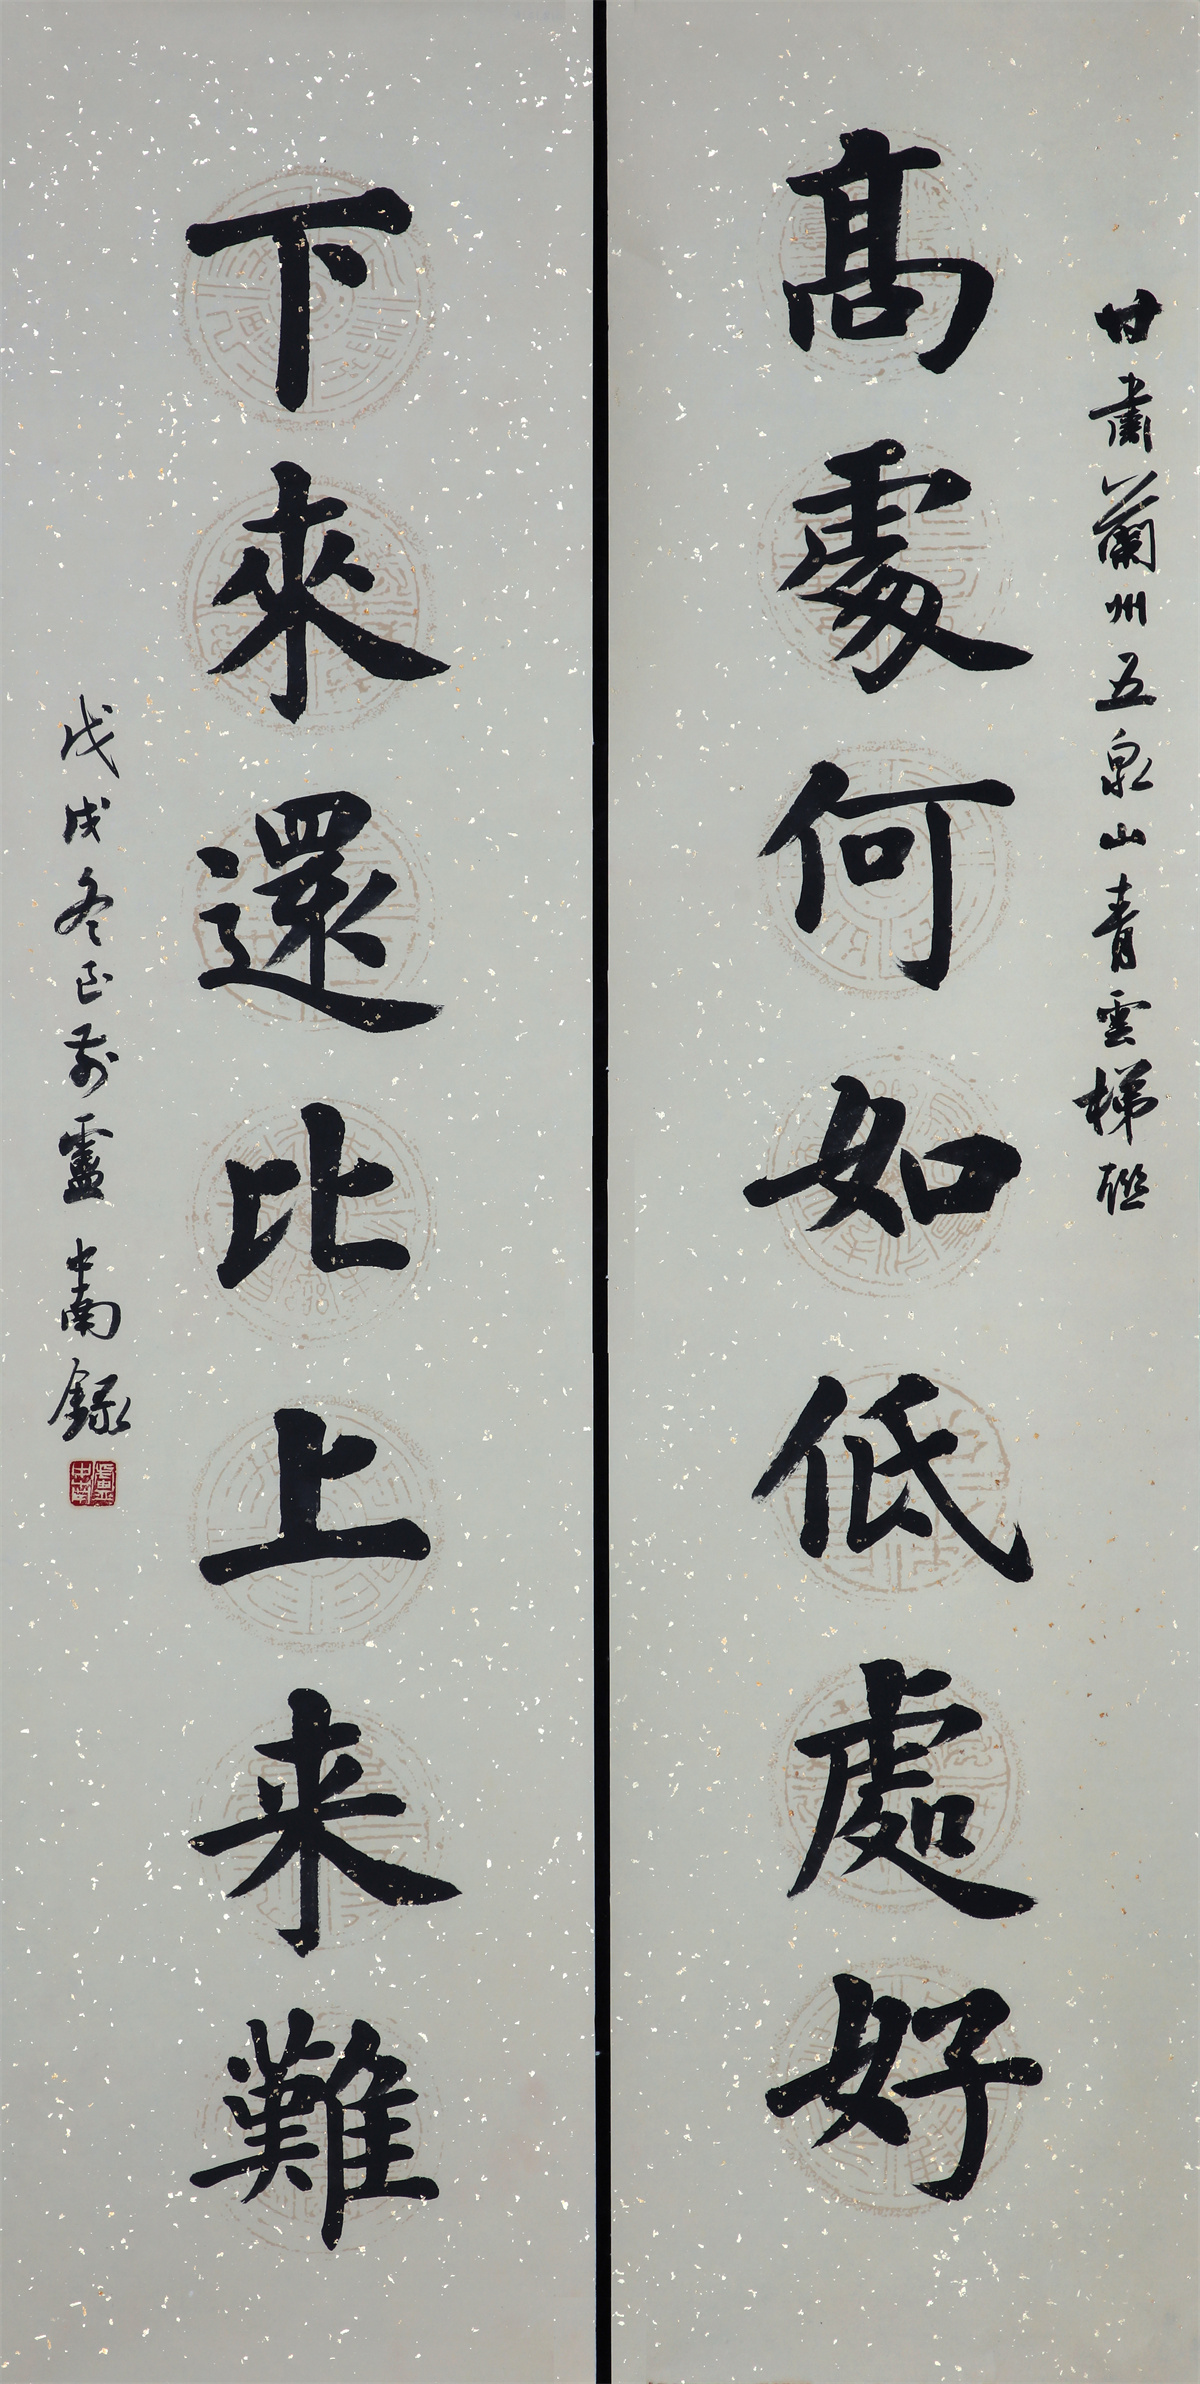 甘肅蘭州五泉山青雲梯聯
高處何如低處好
下來還比上來難
戊戌冬至前盧中南錄
盧中南